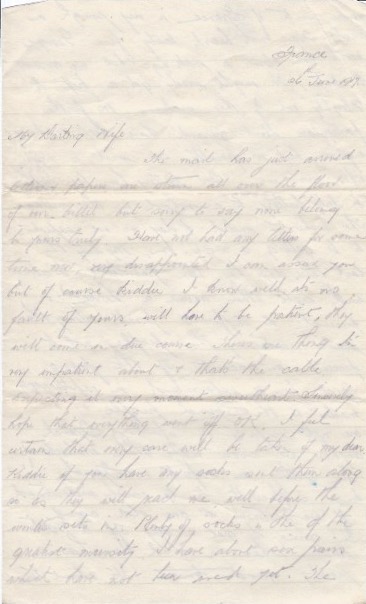 France
26th June 1917
My Darling Wife
The mail has just arrived
letters & papers are strewn all over the floor
of our billet but sorry to say none belong
to yours truly. Have not had any letters for some
time now, very disappointed I can assure you
but of course Kiddie I know well its no
fault of yours, will have to be patient, they
will come in due course. There's one thing I'm
very impatient about & that's the cable
expecting it any moment sweetheart sincerely
hope that everything went off O.K. I feel
certain that every care will be taken of my dear
Kiddie if you have any socks send them along
so as they will reach me well before the
winter sets in. Plenty of socks is the of the
greatest necessity, I have about six pairs
which have not been used yet. The